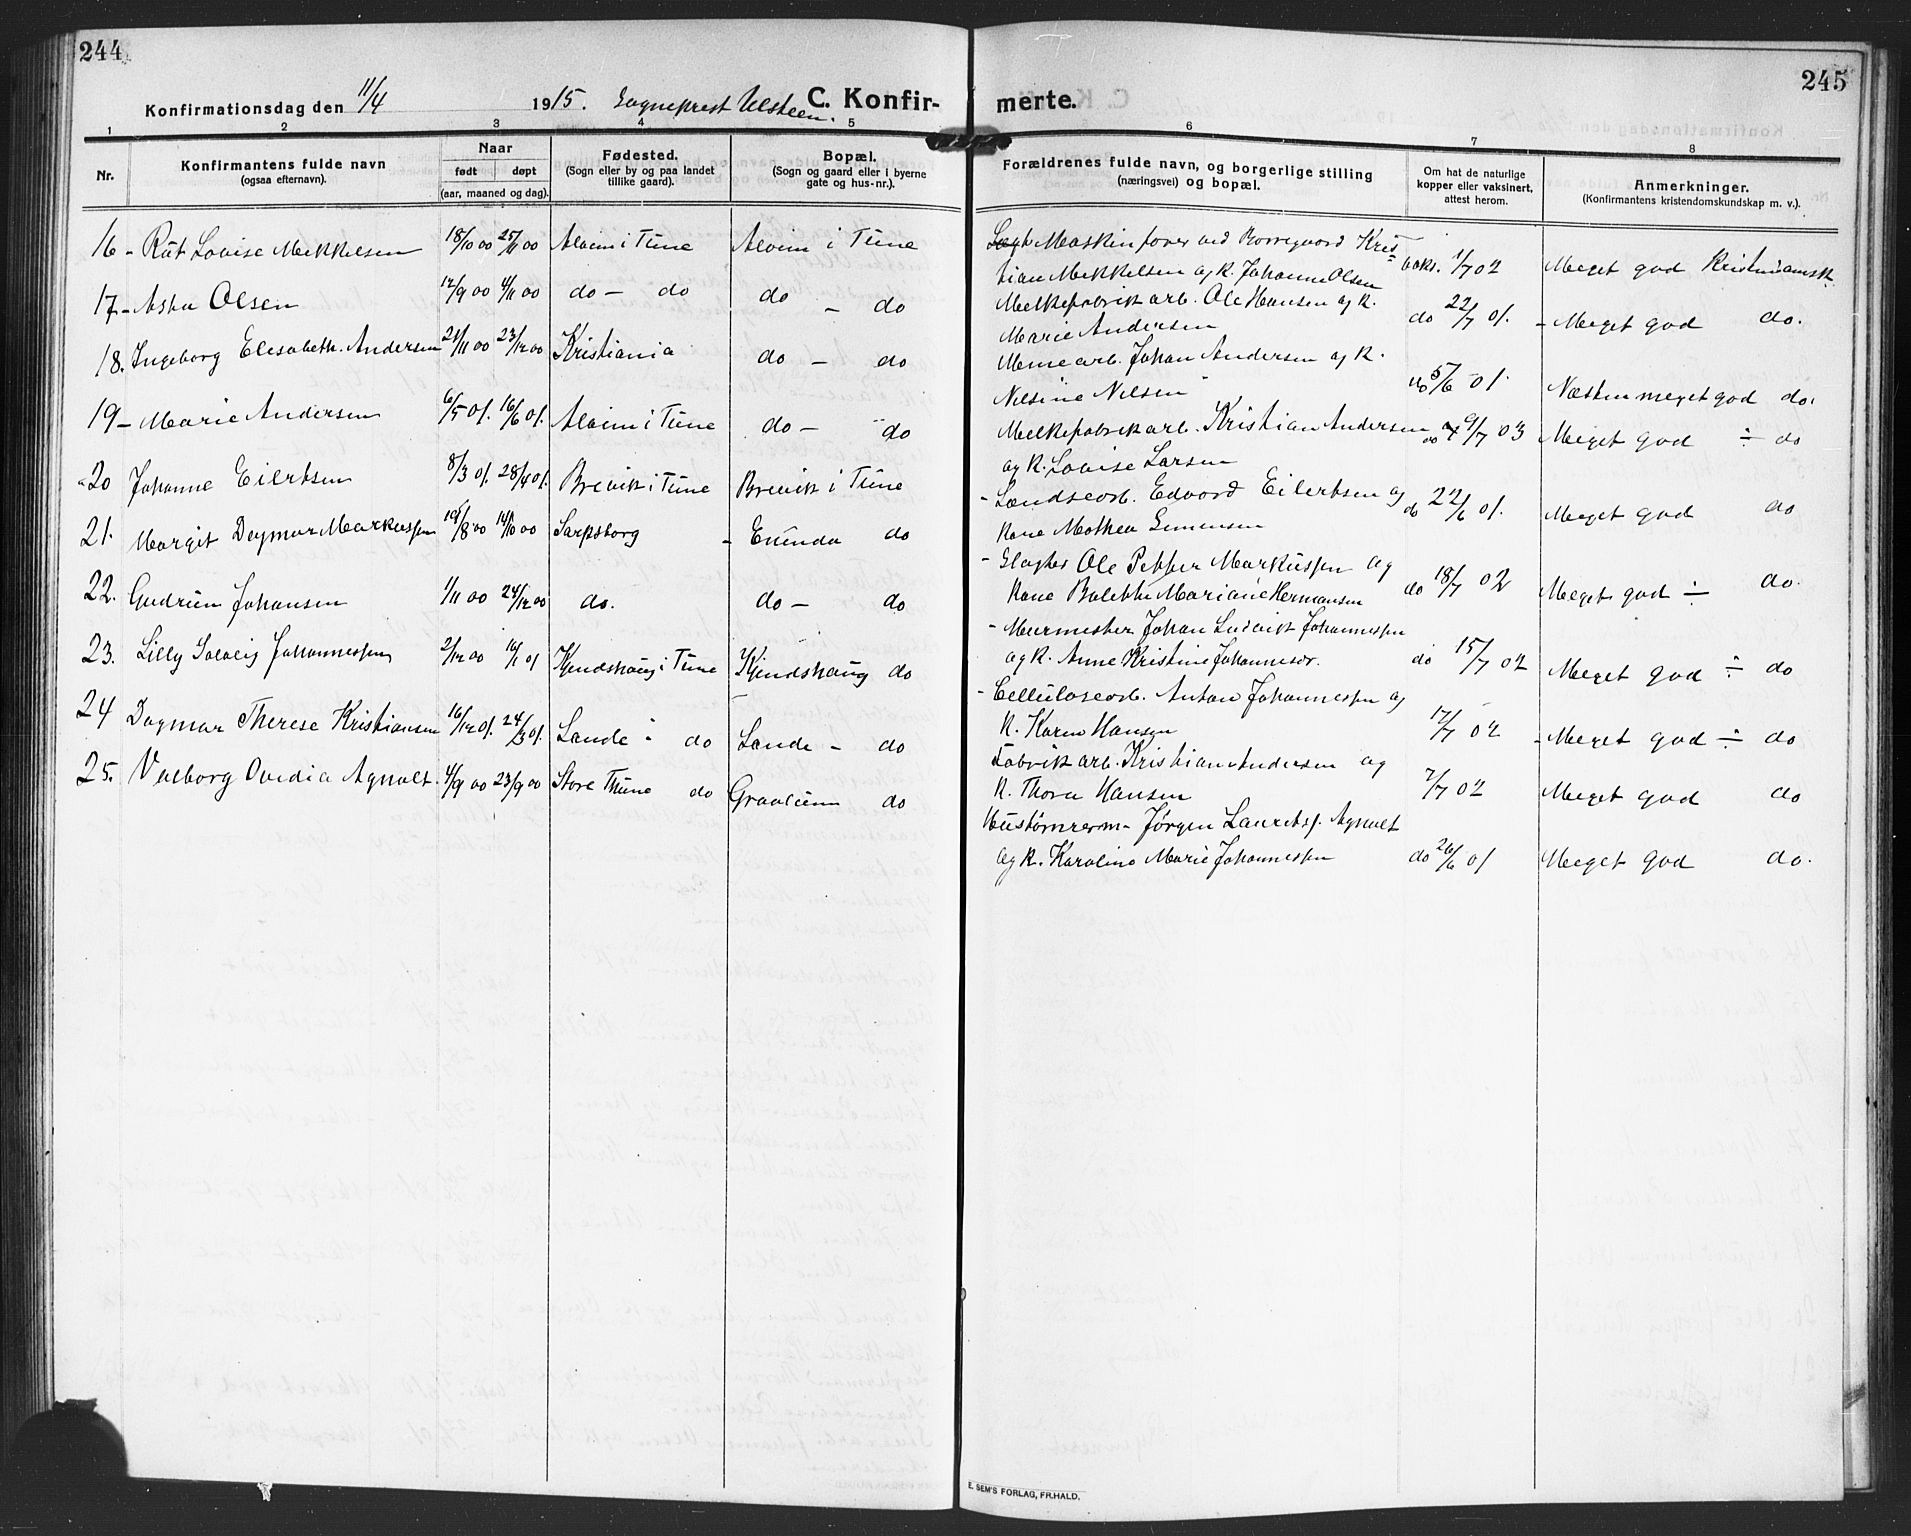 244
245
Konfirmationsdag den 11/4 1915. Sogneprest Ulsteen. C. Konfir- merte.
1 2 3 4 5 6 7 8
Nr.
Konfirmantens fulde navn
(ogsaa efternavn).
Naar
født døpt
(aar, maaned og dag).
Fødested.
(Sogn eller by og paa landet
tillike gaard).
Bopæl.
(Sogn og gaard eller i byerne
gate og hus-nr.).
Forældrenes fulde navn, og borgerlige stilling
(næringsvei) og bopæl.
Om hat de naturlige
kopper eller vaksinert,
attest herom.
Anmerkninger.
(Konfirmantens kristendomskundskap m. v.).
16 - Rut Lovise Mekkelsen 18/10 00 25/11 00 Alvim i Tune Alvim i Tune
Maskinfører ved Borregaard Kris-
tian Mekkelsen og k. Johanne Olsen vaks. 1/7 02 Meget god Kristendomsk.
17 - Asta Olsen 12/9 00 4/11 00 do - do do - do
Melkefabrik arb. Ole Hansen og k.
Marie Andersen do 22/7 01. - Meget god do.
18. Ingeborg Elisabeth Andersen 21/11 00 23/12 00 Kristiania do - do
Johan Andersen og k.
Nilsine Nilsen do 5/6 01. Næsten meget god do.
19 - Marie Andersen 6/5 01. 16/6 01. Alvim i Tune do - do
Melkefabrikarb. Kristian Andersen
og k. Lovise Larsen do 9/7 03 Meget god ÷ do
20 Johanne Eilertsen 8/3 01. 28/4 01. Brevik i Tune Brevik i Tune
- Landsearb. Edvard Eilertsen og
kone Mathea Simensen do 22/6 01. Meget god do
21. Margit Dagmar Markussen 19/8 00 14/10 00 Sarpsborg - Enenda do
- Slagter Ole Petter Markussen og
kone Bolette Mariane Hermansen do 18/7 02 Meget god ÷ do.
22. Gudrun Johansen 1/11 00 24/12 00 do. do - do
- Murmester Johan Ludvik Johannessen
og k. Anne Kristine Johannesdr. do 15/7 02 Meget god ÷ do
23. Lilly Solveig Johannessen 2/12 00 16/1 01 Kjendshaug i Tune Kjendshaug do
- Cellulosearb. Anton Johannessen og
k. Karen Hansen 17/7 02 - Meget god ÷ do
24 Dagmar Therese Kristiansen 16/12 01. 24/3 01. Lande - do Lande - do
Fabrik arb. Kristian Andersen og
k. Thora Hansen 7/7 02 Meget god do
25. Valborg Ovidia Agnalt 4/9 00 23/9 00 Store Thune do Graalum do
Hustømrerm. Jørgen Lauritsf. Agnalt
og k. Karoline Marie Johannessen do 26/6 01 Meget god do.
E. SEM'S FORLAG, FR.HALD.